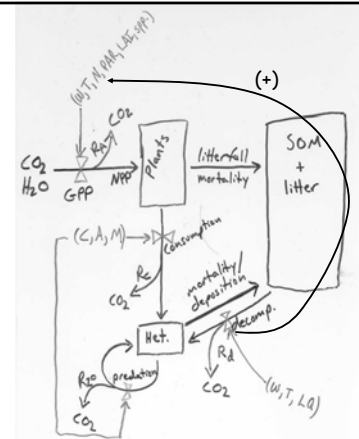 (W,T,N,PAR,LAI,spp.)
(+)
CO2
RA
CO2
H2O
GPP
NPP
Plants
litterfall/
mortality
SOM
+
litter
(C,A,M)
consumption
Rc
CO2
mortality/
deposition
Het.
decomp.
Rd
CO2
predation
CO2
(W,T,LQ)